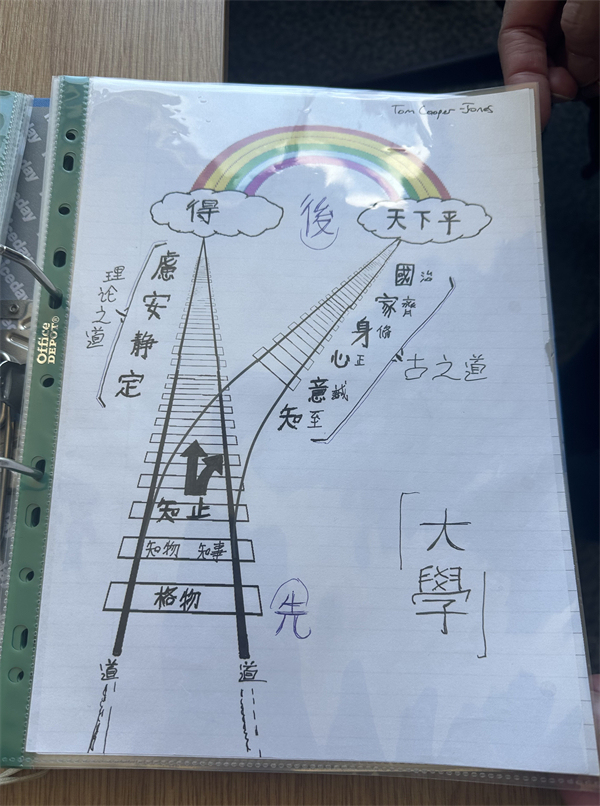 Tom Cooper-Jones
得
後
天下平
慮
安
靜
定
理论之道
國治
家齊
身脩
心正
意誠
知至
古之道
知止
知物 知事
格物
先
「大學」
道
道
Office DEPOT